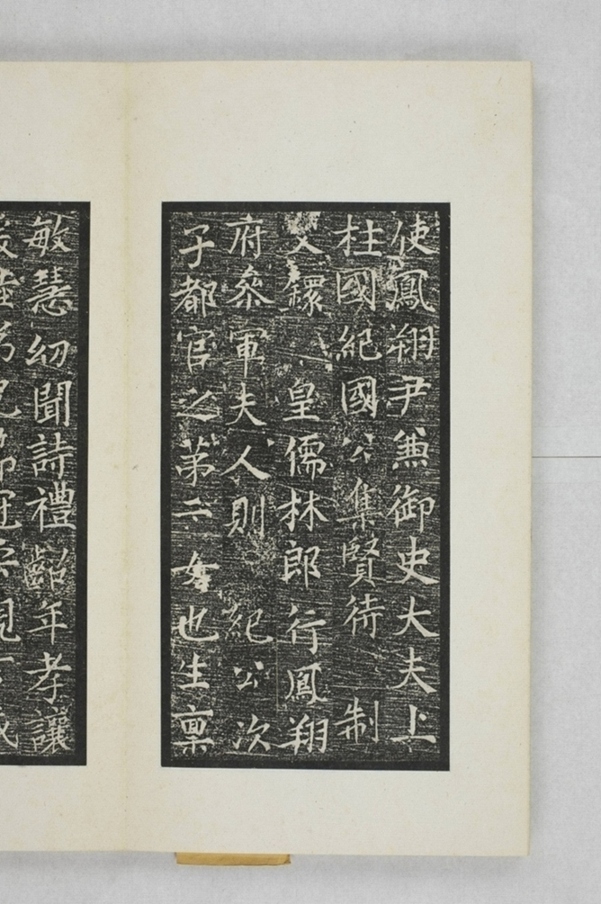 使鳳翔尹兼御史大夫上
柱國紀國公集賢待制
鐶皇儒林郎行鳳翔
府參軍夫人則紀公次
子都官之第二女也生稟
敏慧幼聞詩禮齠年孝讓